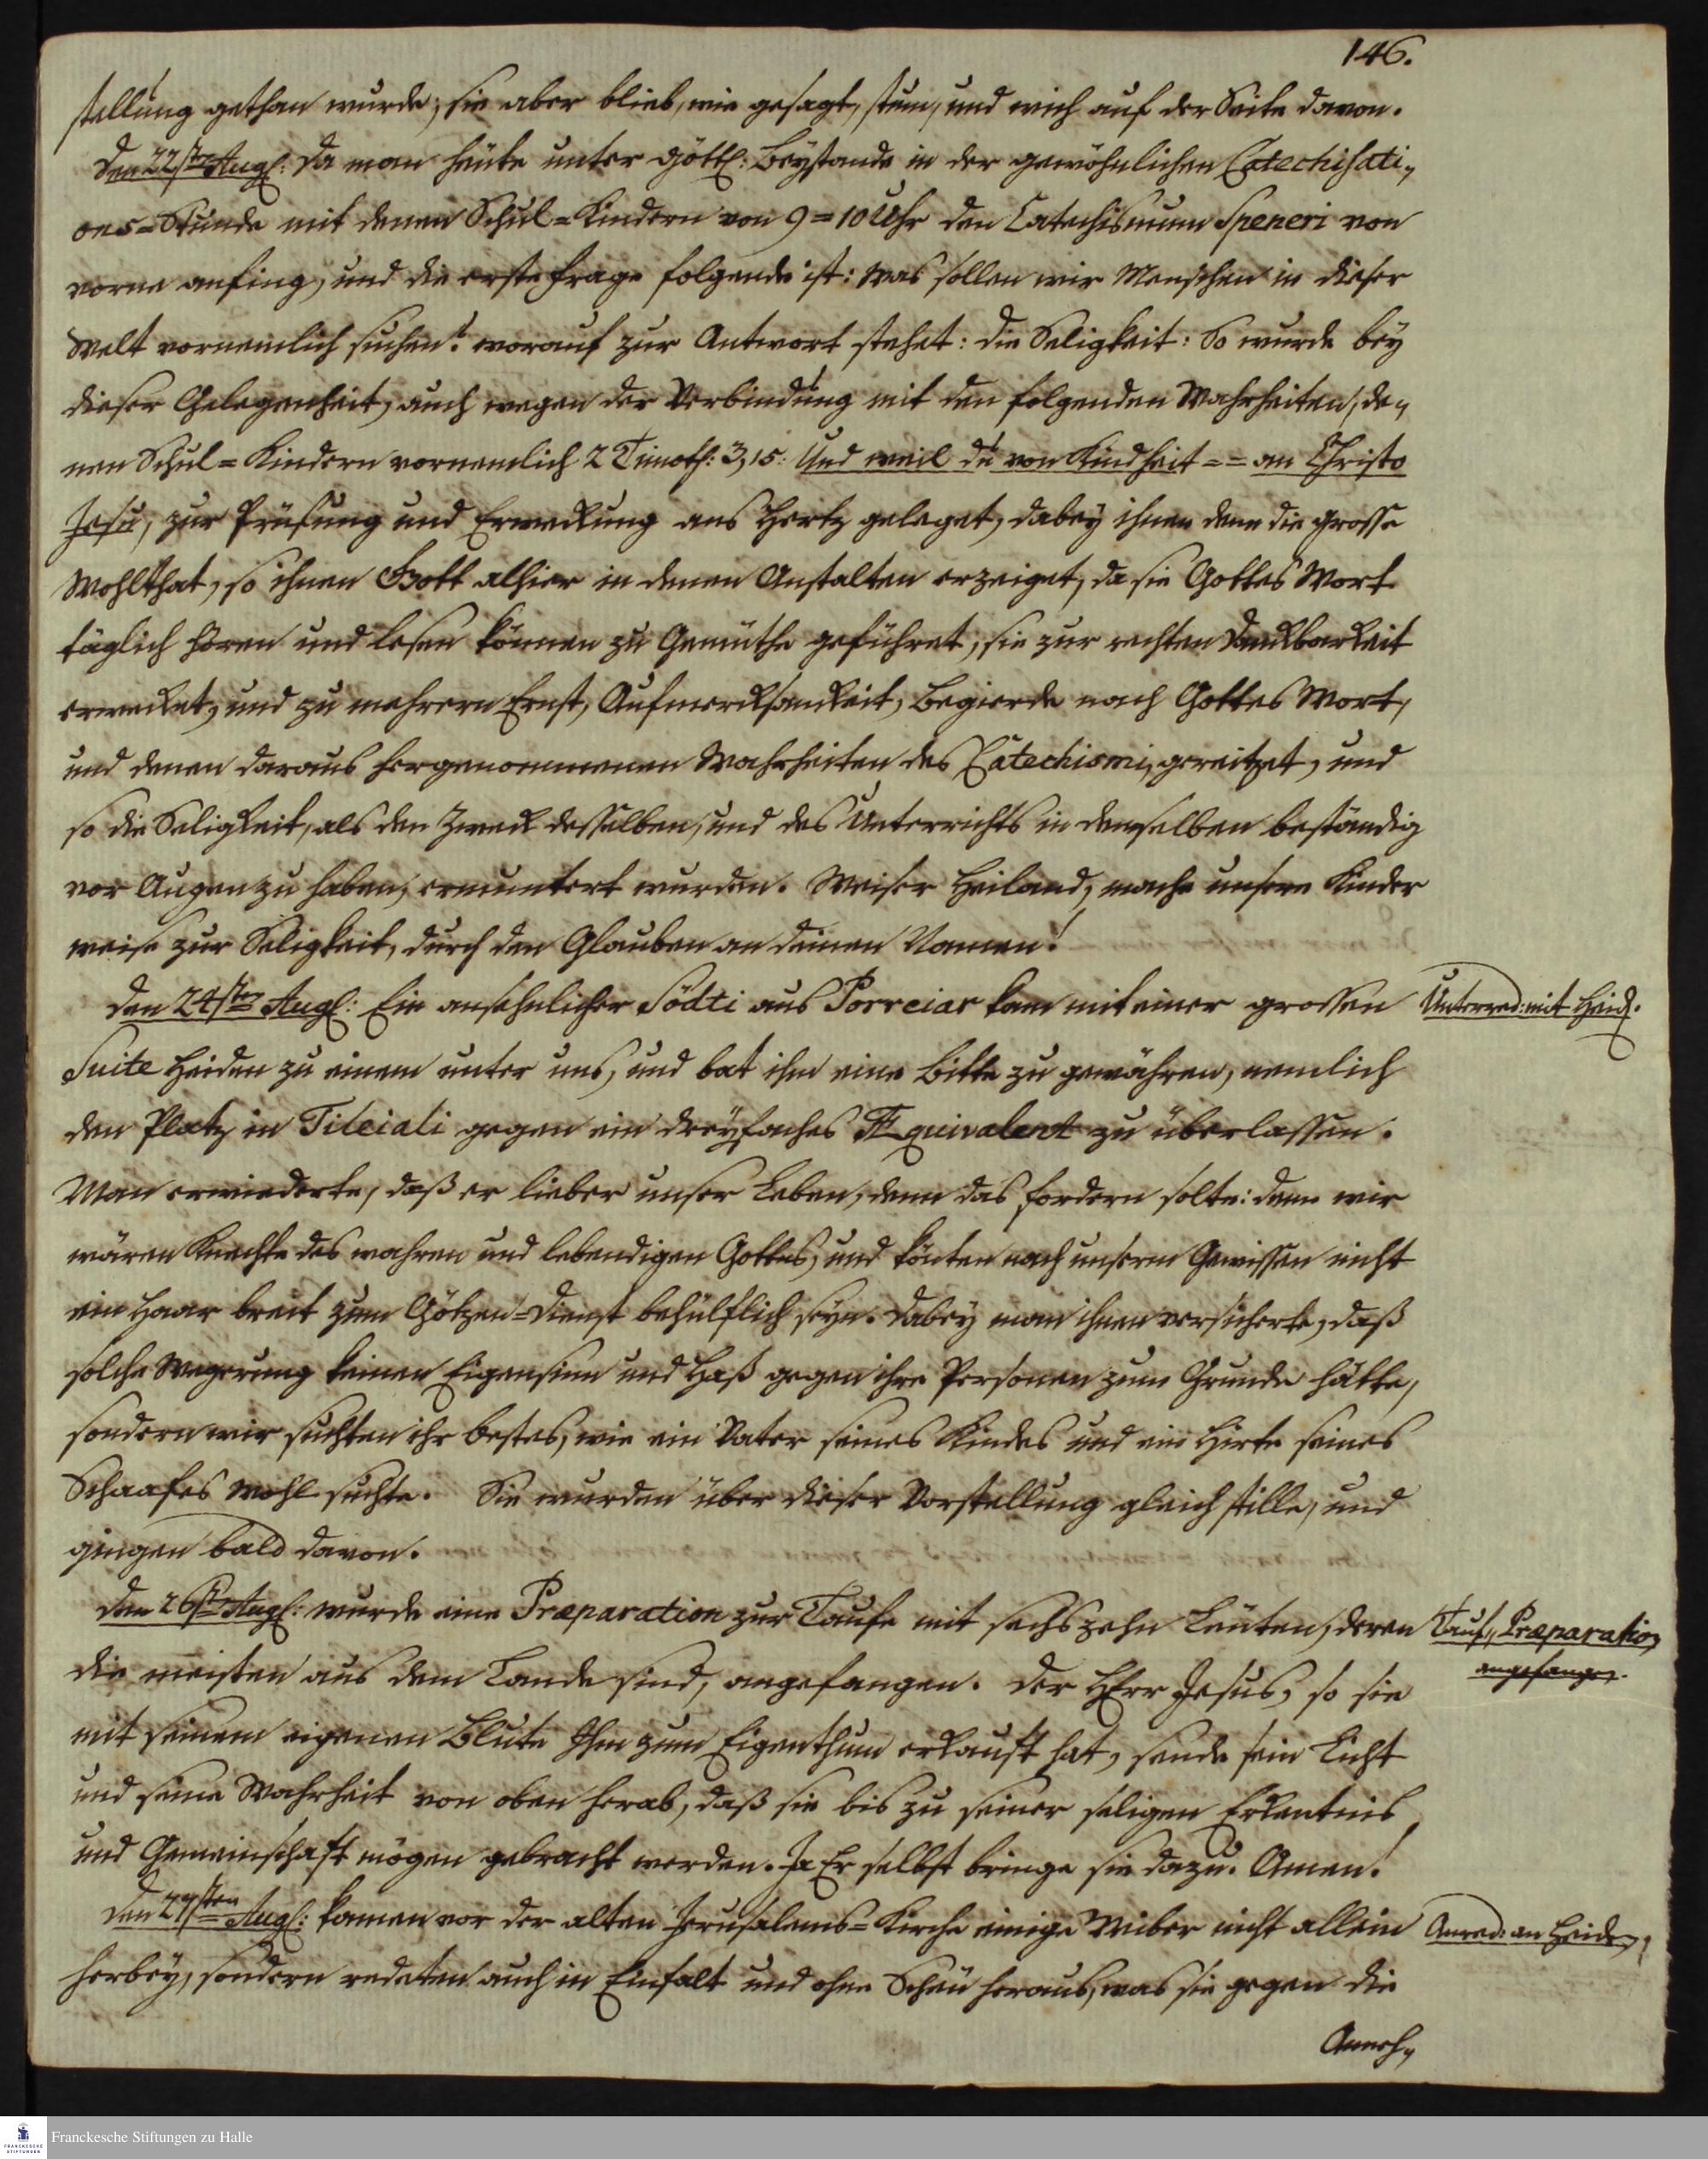 146.
stellung gethan wurde; sie aber blieb, wie gesagt, stum, und wich auf der Seite davon.
Den 22sten Aug: Da man heute unter göttl: Beystande in der gewöhnlichen Catechisati-
ons-Stunde mit denen Schul-Kindern von 9-10 Uhr den Catechismum Speneri von
vorne anfing, und die erste Frage folgende ist: Was sollen wir Menschen in dieser
Welt vornemlich suchen? worauf zur Antwort stehet: die Seligkeit: So wurde bey
dieser Gelegenheit, auch wegen der Verbindung mit den folgenden Wahrheiten, de-
nen Schul-Kindern vornemlich 2 Timoth: 3,15: Und weil du von Kindheit == an Christo
Jesu, zur Prüfung und Erweckung ans Hertz geleget, dabey ihnen denn die grosse
Wohlthat, so ihnen Gott alhier in denen Anstalten erzeiget, da sie Gottes Wort
täglich hören und lesen können zu Gemüthe geführet, sie zur rechten Danckbarkeit
erwecket, und zu mehrern Ernst, Aufmercksamkeit, Begierde nach Gottes Wort,
und denen daraus hergenommenen Wahrheiten des Catechismi, gereitzet, und
so die Seligkeit, als den Zweck desselben, und des Unterrichts in demselben beständig
vor Augen zu haben, ermuntert wurden. Weiser Heiland, mache unsere Kinder
weise zur Seligkeit, durch den Glauben an deinen Namen!
Den 24sten Aug: Ein ansehnlicher Södti aus Porreiar kam mit einer grossen
Unterred: mit Heid.
Suite Heiden zu einem unter uns, und bat ihm eine Bitte zu gewähren, nemlich
den Platz in Tileiali gegen ein dreyfaches Æquivalent zu überlassen.
Man erwiederte, daß er lieber unser Leben, denn das fordern solte: denn wir
wären Knechte des wahren und lebendigen Gottes, und könten nach unserm Gewissen nicht
ein Haar breit zum Götzen-Dienst behülflich seyn. Dabey man ihnen versicherte, daß
solche Wegerung keinen Eigensinn und Haß gegen ihre Personen zum Grunde hätte,
sondern wir suchten ihr bestes, wie ein Vater seines Kindes und ein Hirte seines
Schaafes Wohl suchte. Sie wurden über dieser Vorstellung gleich stille, und
gingen bald davon.
Den 26sten Aug: wurde eine Præparation zur Taufe mit sechszehn Leuten, deren
Tauf-Præparation
angefangen.
die meisten aus dem Lande sind, angefangen. Der HErr Jesus, so sie
mit seinem eigenen Blute Ihm zum Eigenthum erkauft hat, sende sein Licht
und seine Wahrheit von oben herab, daß sie bis zu seiner seligen Erkentnis
und Gemeinschaft mögen gebracht werden. Ja Er selbst bringe sie dazu. Amen!
Den 27sten Aug: kamen vor der alten Jerusalems-Kirche einige Weiber nicht allein
Anred: an Heiden,
herbey, sondern redeten auch in Einfalt und ohne Scheu heraus, was sie gegen die
Anneh-
Franckesche Stiftungen zu Halle